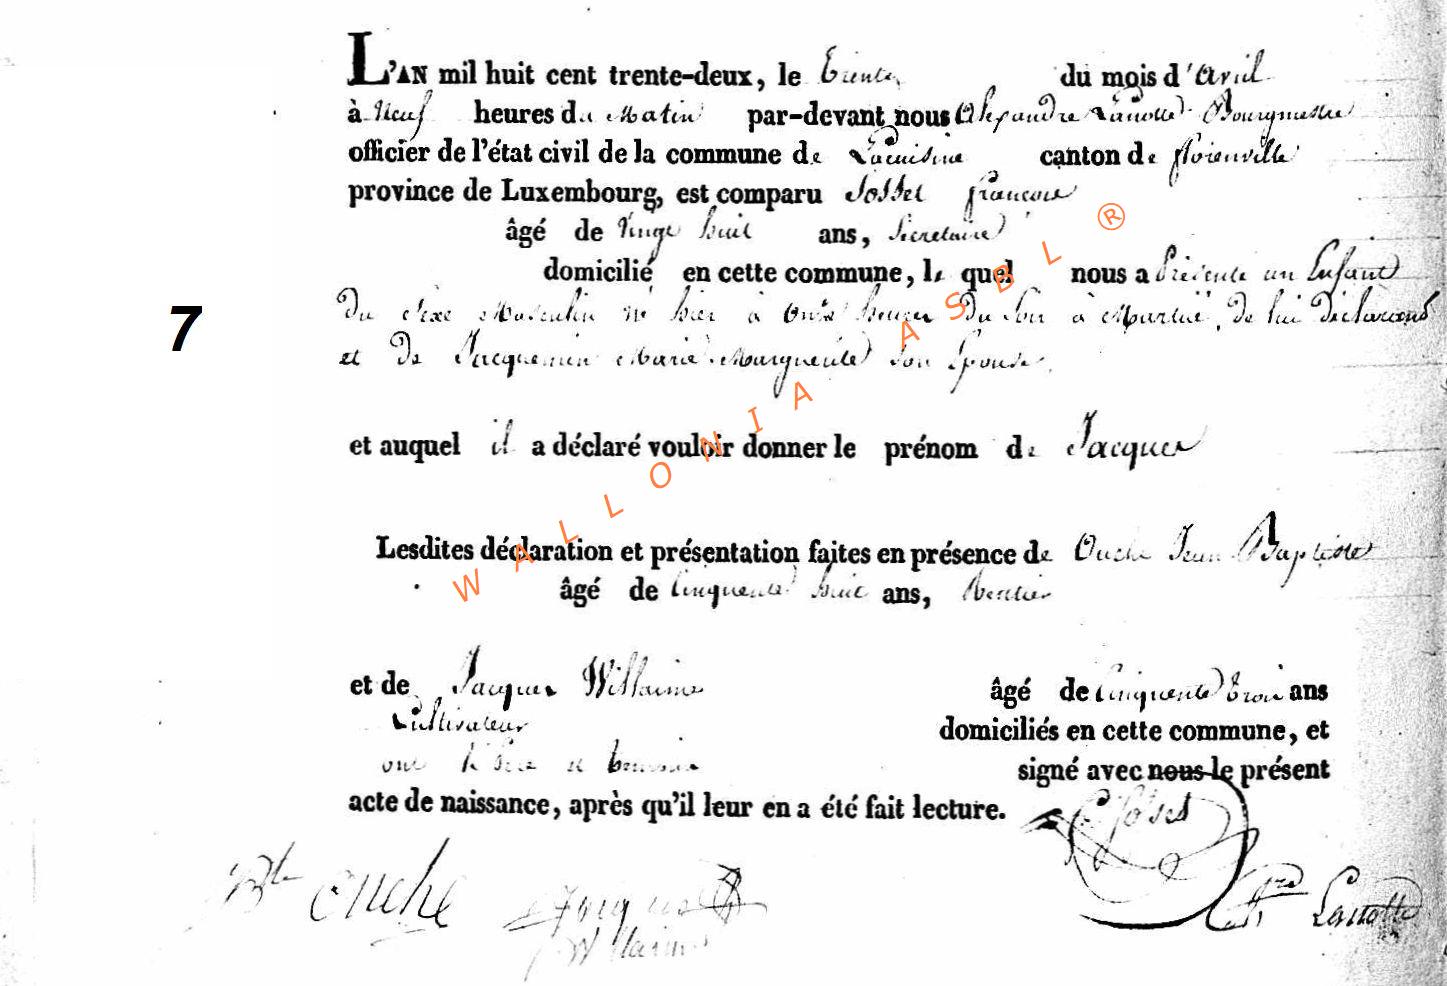 L'AN mil huit cent trente-deux, le trente du mois d'avril
à neuf heures du Matin par-devant nous Alexandre Lanotte Bourgmestre
officier de l'état civil de la commune de Lacuisine canton de florenville
province de Luxembourg, est comparu Josset françois
âgé de Vingt huit ans, Secretaire
domicilié en cette commune, le quel nous a Présenté un Enfant
7
Du sèxe Masculin né hier à onze heures Du Soir à Martué, de lui Déclarant
et De Jacquemin Marie Marguerite son Epouse
et auquel il a déclaré vouloir donner le prénom de Jacques
Lesdites déclaration et présentation faites en présence de Ouché Jean Baptiste
âgé de Cinquante huit ans, Rentier
et de Jacques Willaime âgé de Cinquante trois ans
Cultivateur domiciliés en cette commune, et
ont le Père et témoins signé avec nous le présent
acte de naissance, après qu'il leur en a été fait lecture.
Josset
Bte ouché Jacques
Willaime
Lanotte
WALLONIA ASBL ®